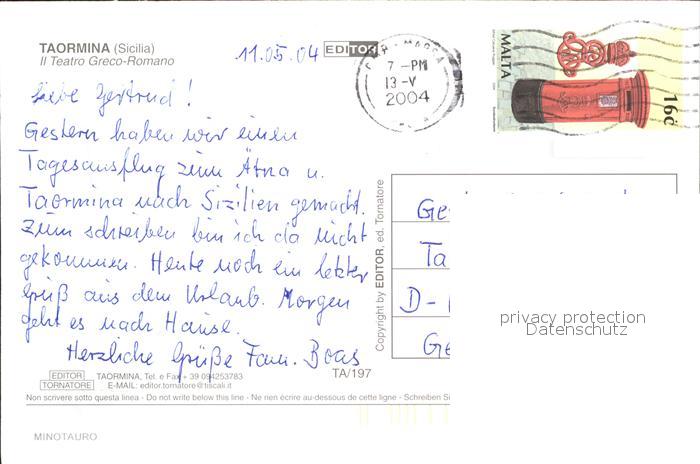 TAORMINA (Sicilia)
Il Teatro Greco-Romano
11.05.04
EDITOR
7 - PM
13 - V
2004
MALTA
16c
Liebe Gertrud!
Gestern haben wir einen
Tagesausflug zum Ätna u.
Taormina nach Sizilien gemacht.
Zum schreiben bin ich da nicht
gekommen. Heute noch ein letzter
Gruß aus dem Urlaub. Morgen
geht es nach Hause.
Herzliche Grüße Fam. Boas
Copyright by EDITOR, ed. Tornatore
Ge
Ta
D-
Ge
privacy protection
Datenschutz
EDITOR
TORNATORE
TAORMINA, Tel. e Fax + 39 094253783
E-MAIL: editor.tornatore@tiscali.it
TA/197
Non scrivere sotto questa linea - Do not write below this line - Ne rien écrire au-dessous de cette ligne - Schreiben Si
MINOTAURO